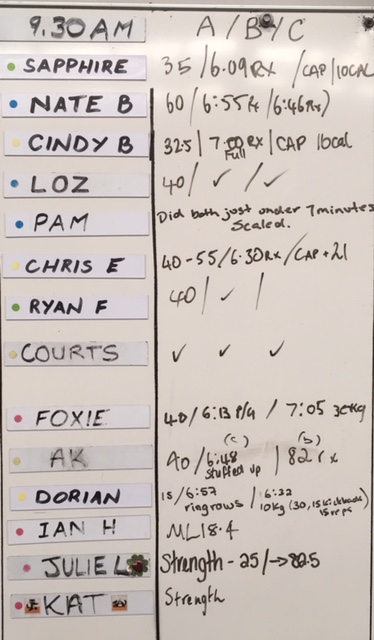 9.30AM A / B / C
SAPPHIRE 35 / 6.09 RX / CAP 10CAL
NATE B 60 / 6:55 Rx / 6:46 Rx)
CINDY B 32.5 | 7:00 RX | CAP 10cal
Full
LOZ 40 / ✓ / ✓
PAM Did both just under 7 minutes
Scaled.
CHRIS E 40-55 / 6.30 RX / CAP + 21
RYAN F 40 / ✓ /
COURTS ✓ ✓ ✓
FOXIE 40 / 6:13 P/G / 7:05 30KG
(c) (b)
AK 40 / 6:48 | 82 rx
stuffed up
DORIAN 15 / 6:57 / 6:22
ringrows 10kg (30, 15 kickbacks
15 reps
IAN H ML18.4
JULIE L Strength - 25 / → 82.5
KAT Strength